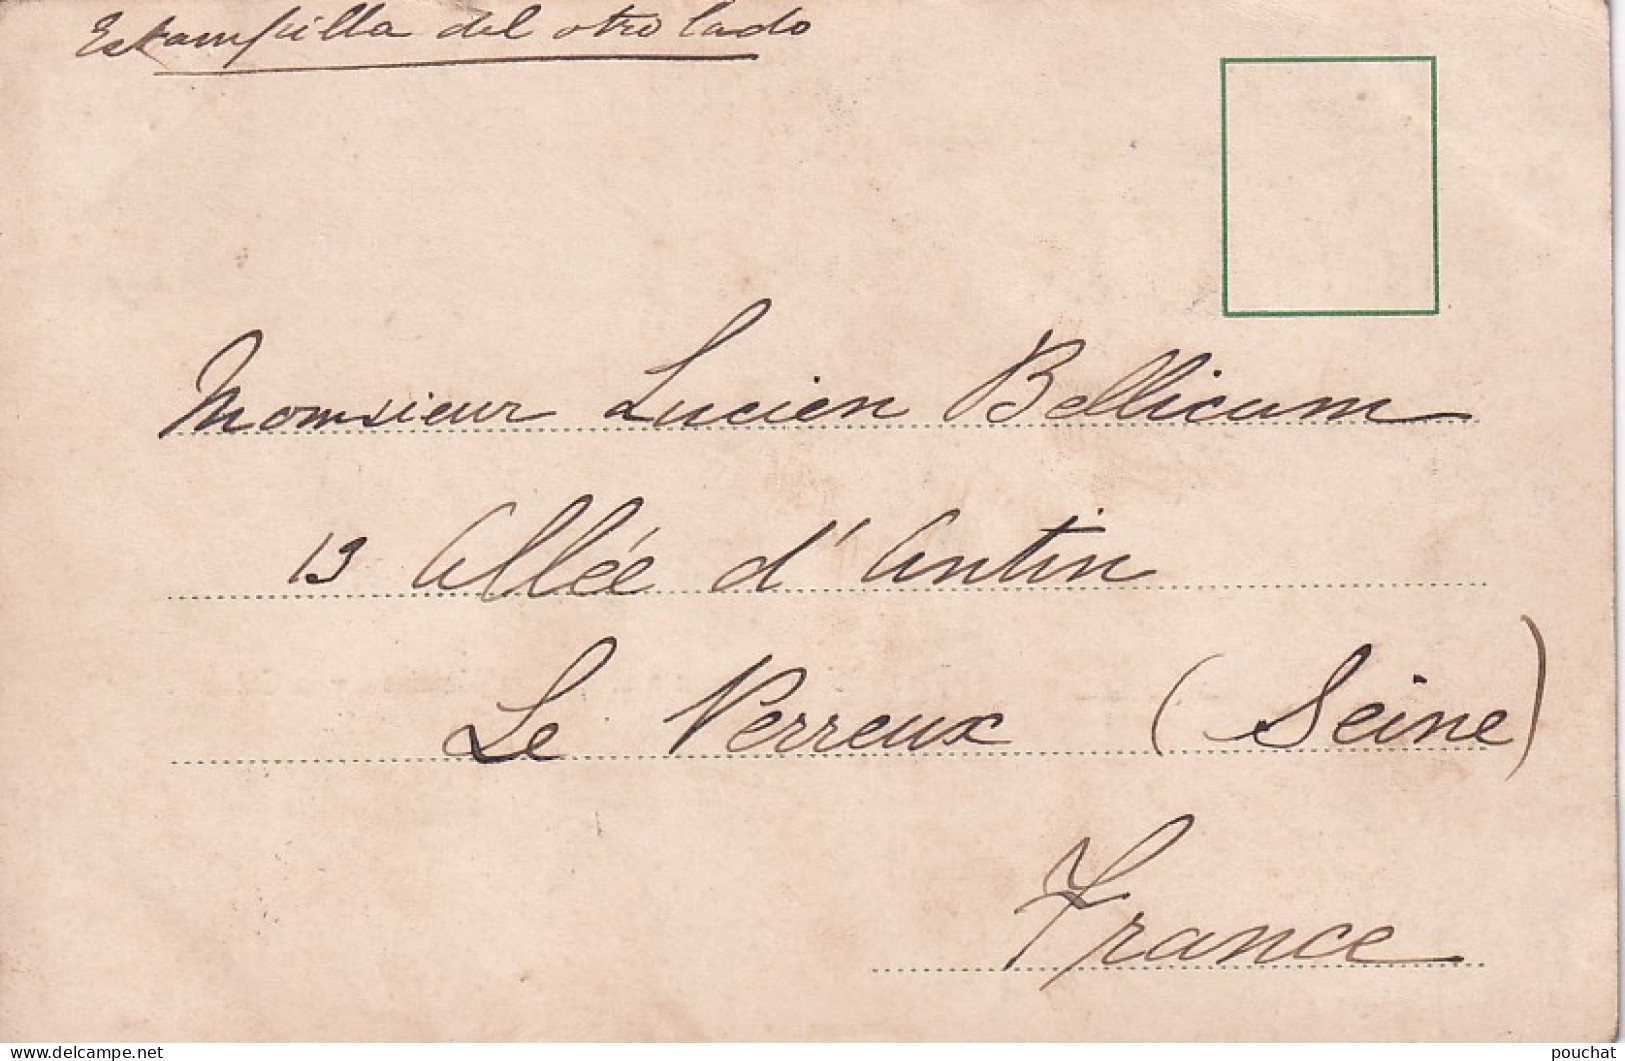 Estampilla del otro lado
Monsieur Lucien Bellicum
13 Allée d'Antin
Le Perreux (Seine)
France
www.delcampe.net
pouchat